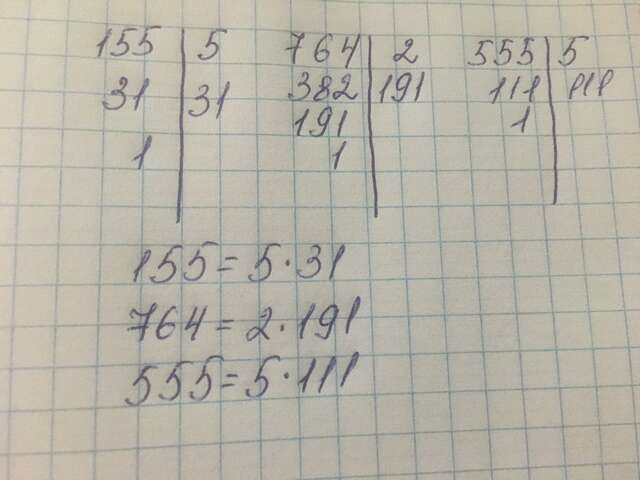 155 | 5 764 | 2 555 | 5
31 | 31 382 | 191 111 | 111
191 1
1 1
155 = 5 · 31
764 = 2 · 191
555 = 5 · 111